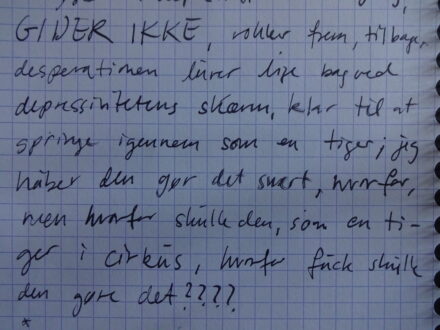 GIDER IKKE, vokler frem, tilbage,
desperationen lurer lige bagved
depressivitetens skærm, klar til at
springe igennem som en tiger; jeg
håber den gør det snart, hvorfor,
men hvorfor skulle den, som en ti-
ger i cirkus, hvorfor fuck skulle
den gøre det????
*